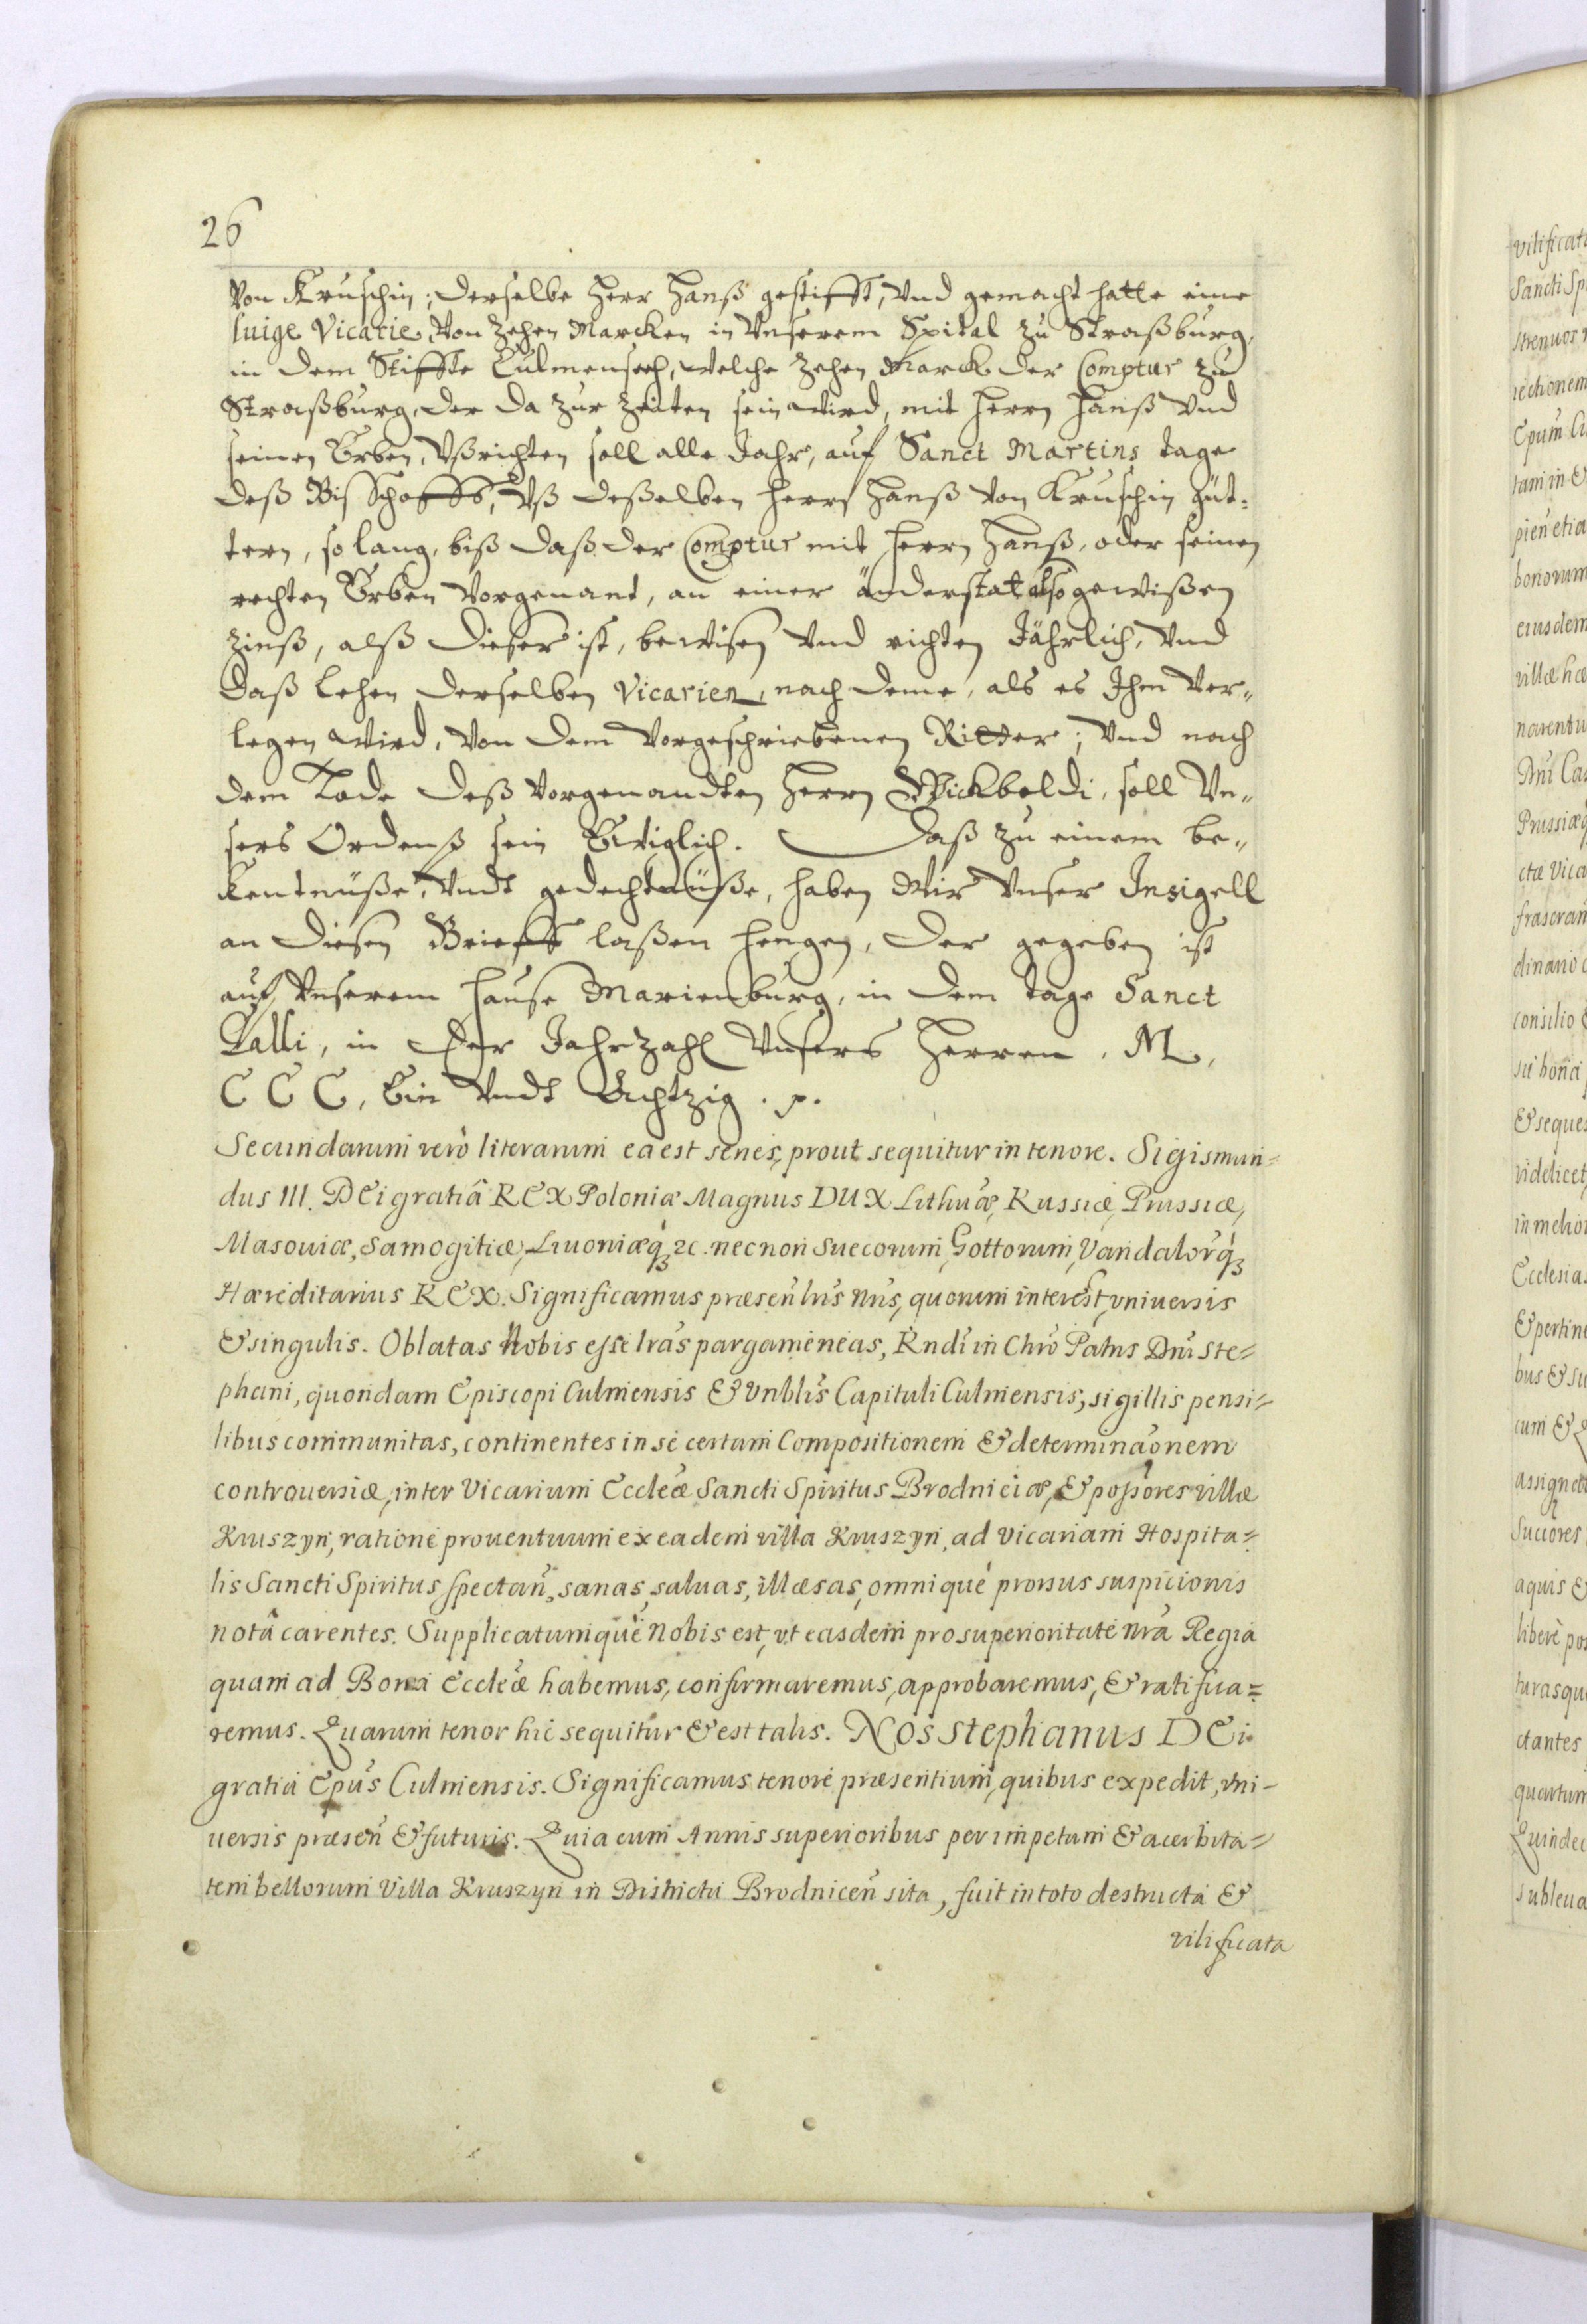 26
Von Kruschin; derselbe Herr Hanß gestifft, Vnd gemacht hatte eine
luige Vicarie, Von Zehen Marcken in Vnserem Spital zu Straßburg,
in dem Stiffte Culmenseeh, welche zehen Marck der Comptur zu
Straßburg, der da zur Zeiten sein wird, mit Herrn Hanß Vnd
seinen Erben, Vßrichten soll alle Jahr, auf Sanct Martins tage
deß Bisschoffs, Vß deßelben Herrn Hanß Von Kruschin güt-
tern, so lang, biß daß der Comptur mit Herrn Hanß, oder seinen
rechten Erben Vorgenant, an einer änderstat also gewißen
Zinß, alß dieser ist, bewisen Vnd richten Jährlich, Vnd
Daß Lehen derselben Vicarien, nach deme, als es Ihm Ver-
legen wird, Von dem Vorgeschriebenen Ritter; Vnd nach
dem Tode deß Vorgenandten Herrn Wickboldi, soll Vn-
sers Ordenß sein Ewiglich. Daß zu einem be-
kentnüße, Vndt gedechtnüße, haben Wir Vnser Insigell
an diesen Brieff laßen hengen, der gegeben ist
auf Vnserem Hause Marienburg, in dem tage Sanct
Galli, in der Jahrzahl Vnsers Herren, M,
C C C, Ein Vndt Achtzig. p.
Secundarum verò literarum ea est series, prout sequitur in tenore. Sigismun-
dus III. DEi gratiâ REX Poloniæ Magnus DUX Lithuæ, Russiæ, Prussiæ,
Masouiæ, Samogitiæ, Liuoniæq́ꝫ ꝛc. necnon Suecorum, Gottorum, Vandalorq́ꝫ
Hæreditarius REX. Significamus præseñ lrĩs nrĩs, quorum interest, vniuersis
& singulis. Oblatas Nobis esse lrãs pargameneas, Rndĩ in Chrõ Patris Dnĩ Ste-
phani, quondam Episcopi Culmensis & Vnblĩs Capituli Culmensis, sigillis pensi-
libus communitas, continentes in se certam Compositionem & determinaõnem
controuersiæ, inter Vicarium Eccleæ Sancti Spiritus Brodniciæ, & possores villæ
Kruszyn, ratione prouentuum ex eadem villa Kruszyn, ad Vicariam Hospita-
lis Sancti Spiritus spectañ, sanas, saluas, illæsas, omnique prorsus suspicionis
notâ carentes. Supplicatumquè Nobis est, vt easdem pro superioritate nrã Regia
quam ad Bona Eccleæ habemus, confirmaremus, approbaremus, & ratifica-
remus. Quarum tenor hic sequitur & est talis. Nos Stephanus DEi
gratia Epũs Culmensis. Significamus tenore præsentium, quibus expedit, vni-
uersis præseñ & futuris. Quia cum Annis superioribus per impetum & acerbita-
tem bellorum Villa Kruszyn in Districtu Brodniceñ sita, fuit in toto destructa &
vilificata